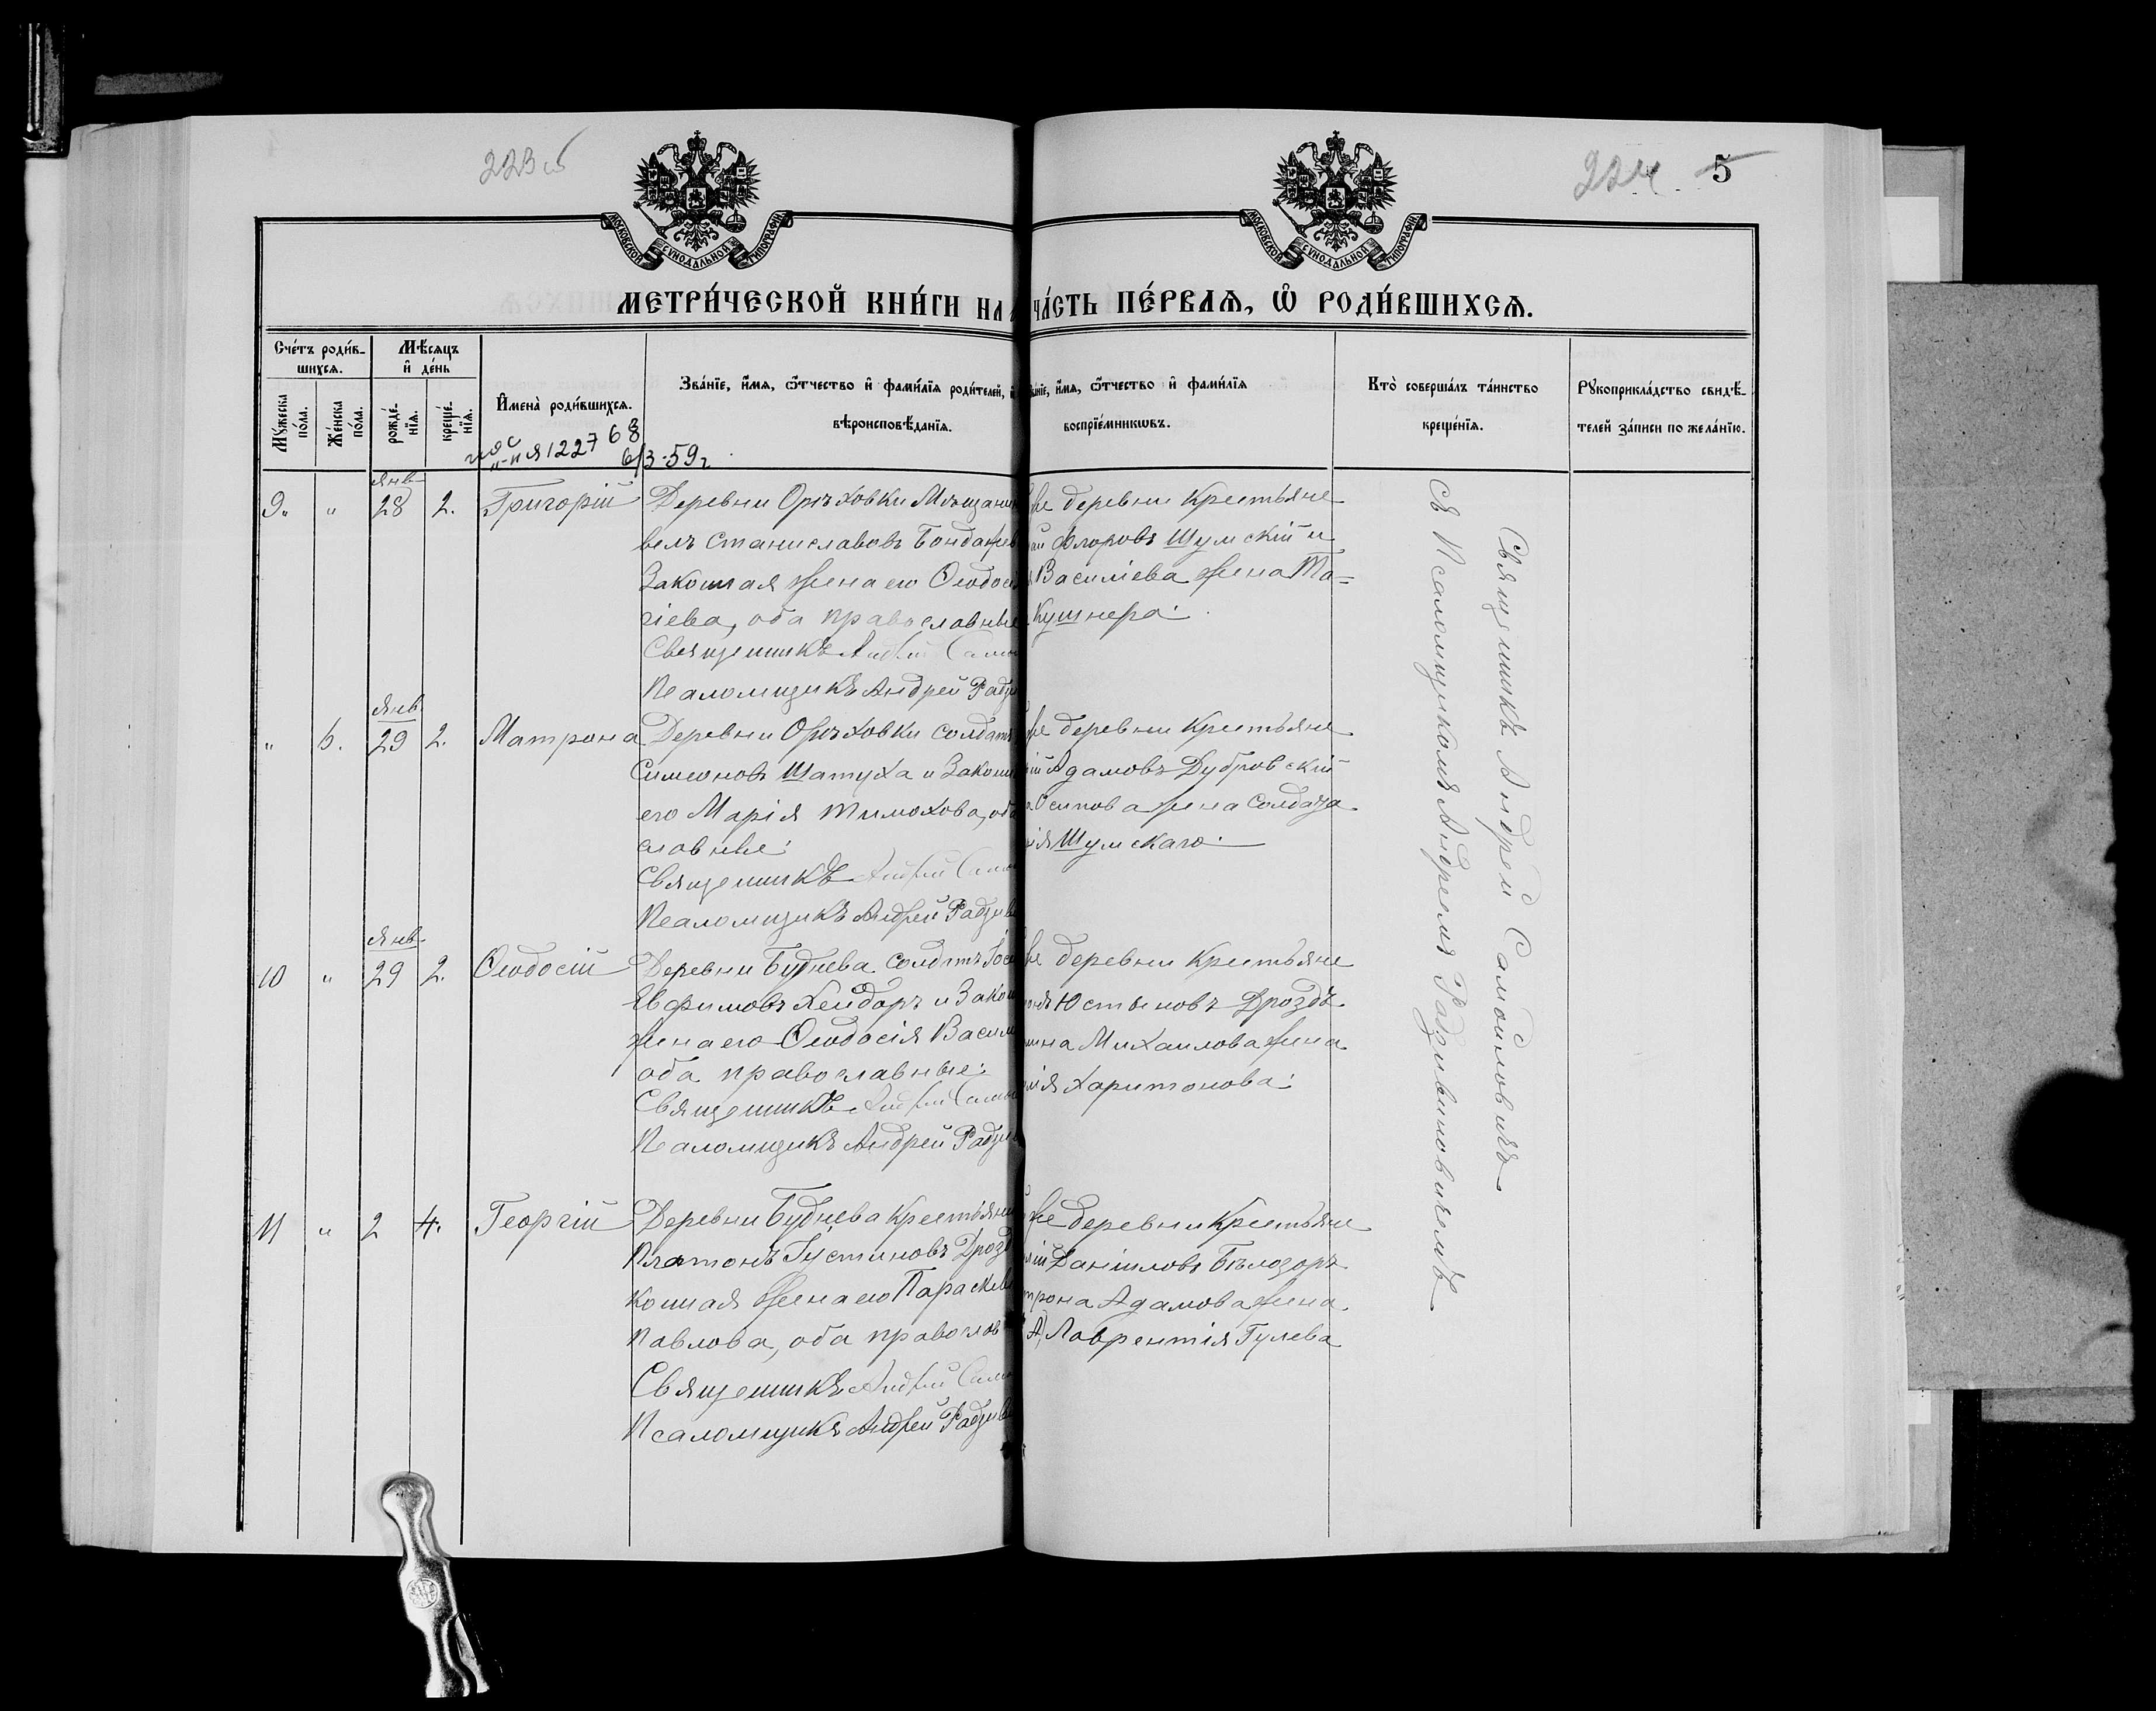 223 об
224 5
МОСКОВСКОЙ СѴНОДАЛЬНОЙ ТИПОГРАФІИ
МОСКОВСКОЙ СѴНОДАЛЬНОЙ ТИПОГРАФІИ
МЕТРИ́ЧЕСКОЙ КНИ́ГИ НА
ЧА́СТЬ ПЕ́РВАЯ, Ѽ РОДИ́ВШИХСЯ.
Сче́тъ роди́в-
шихся.
Мꙋ́жеска по́ла.
Же́нска по́ла.
Мѣ́сяцъ
и҆ де́нь
рожде́нїя.
креще́нїя.
И҆мена̀ роди́вшихся.
Зва́нїе, и҆́мя, ѻ҆́тчество и҆ фами́лїя роди́телей, и҆
вѣроисповѣ́данїя.
Зва́нїе, и҆́мя, ѻ҆́тчество и҆ фами́лїя
воспрїе́мникѡвъ.
Кто̀ соверша́лъ та́инство
креще́нїя.
Рꙋкоприкла́дство свидѣ́-
телей за́писи по жела́нїю.
1227 68
6/3-59г.
9. " янв 28 2. Григорій
Деревни Орѣховки Мѣщанин
велъ Станиславовъ Бондарев
Законная жена его Ѳеодосі
гіева, оба православные
Священникъ Андрей Само
Псаломщикъ Андрей Радзи
же деревни Крестьяне
Флоровъ Шумскій и
Василіева жена Та=
Кушнера.
" 6. янв 29 2. Матрона
Деревни Орѣховки солдатъ
Симеоновъ Шатуха и Законн
его Марія Тимохова, оба
славные:
Священникъ Андрей Само
Псаломщикъ Андрей Радзив
же деревни Крестьяне
Адамовъ Дубровскій
Осипова жена Солдата
Шумскаго.
10 " янв 29 2. Ѳеодосій
Деревни Буднева солдатъ Іос
Ефимовъ Хендоръ и Закон
жена его Ѳеодосія Васил
оба православные:
Священникъ Андрей Само
Псаломщикъ Андрей Радзи
же деревни Крестьяне
Юстиновъ Дроздъ
Михаилова жена
Харитонова.
11 " 2 4. Георгій
Деревни Буднева Крестьянин
Платонъ Іустиновъ Дрозд
конная жена его Параскев
Павлова, оба православ
Священникъ Андрей Само
Псаломщикъ Андрей Радзив
же деревни Крестьяне
Даніиловъ Бѣлозоръ
трона Адамова жена
Лаврентія Гулева
Священникъ Андрей Самойловичъ
съ Псаломщикомъ Андреемъ Радзивиновичемъ